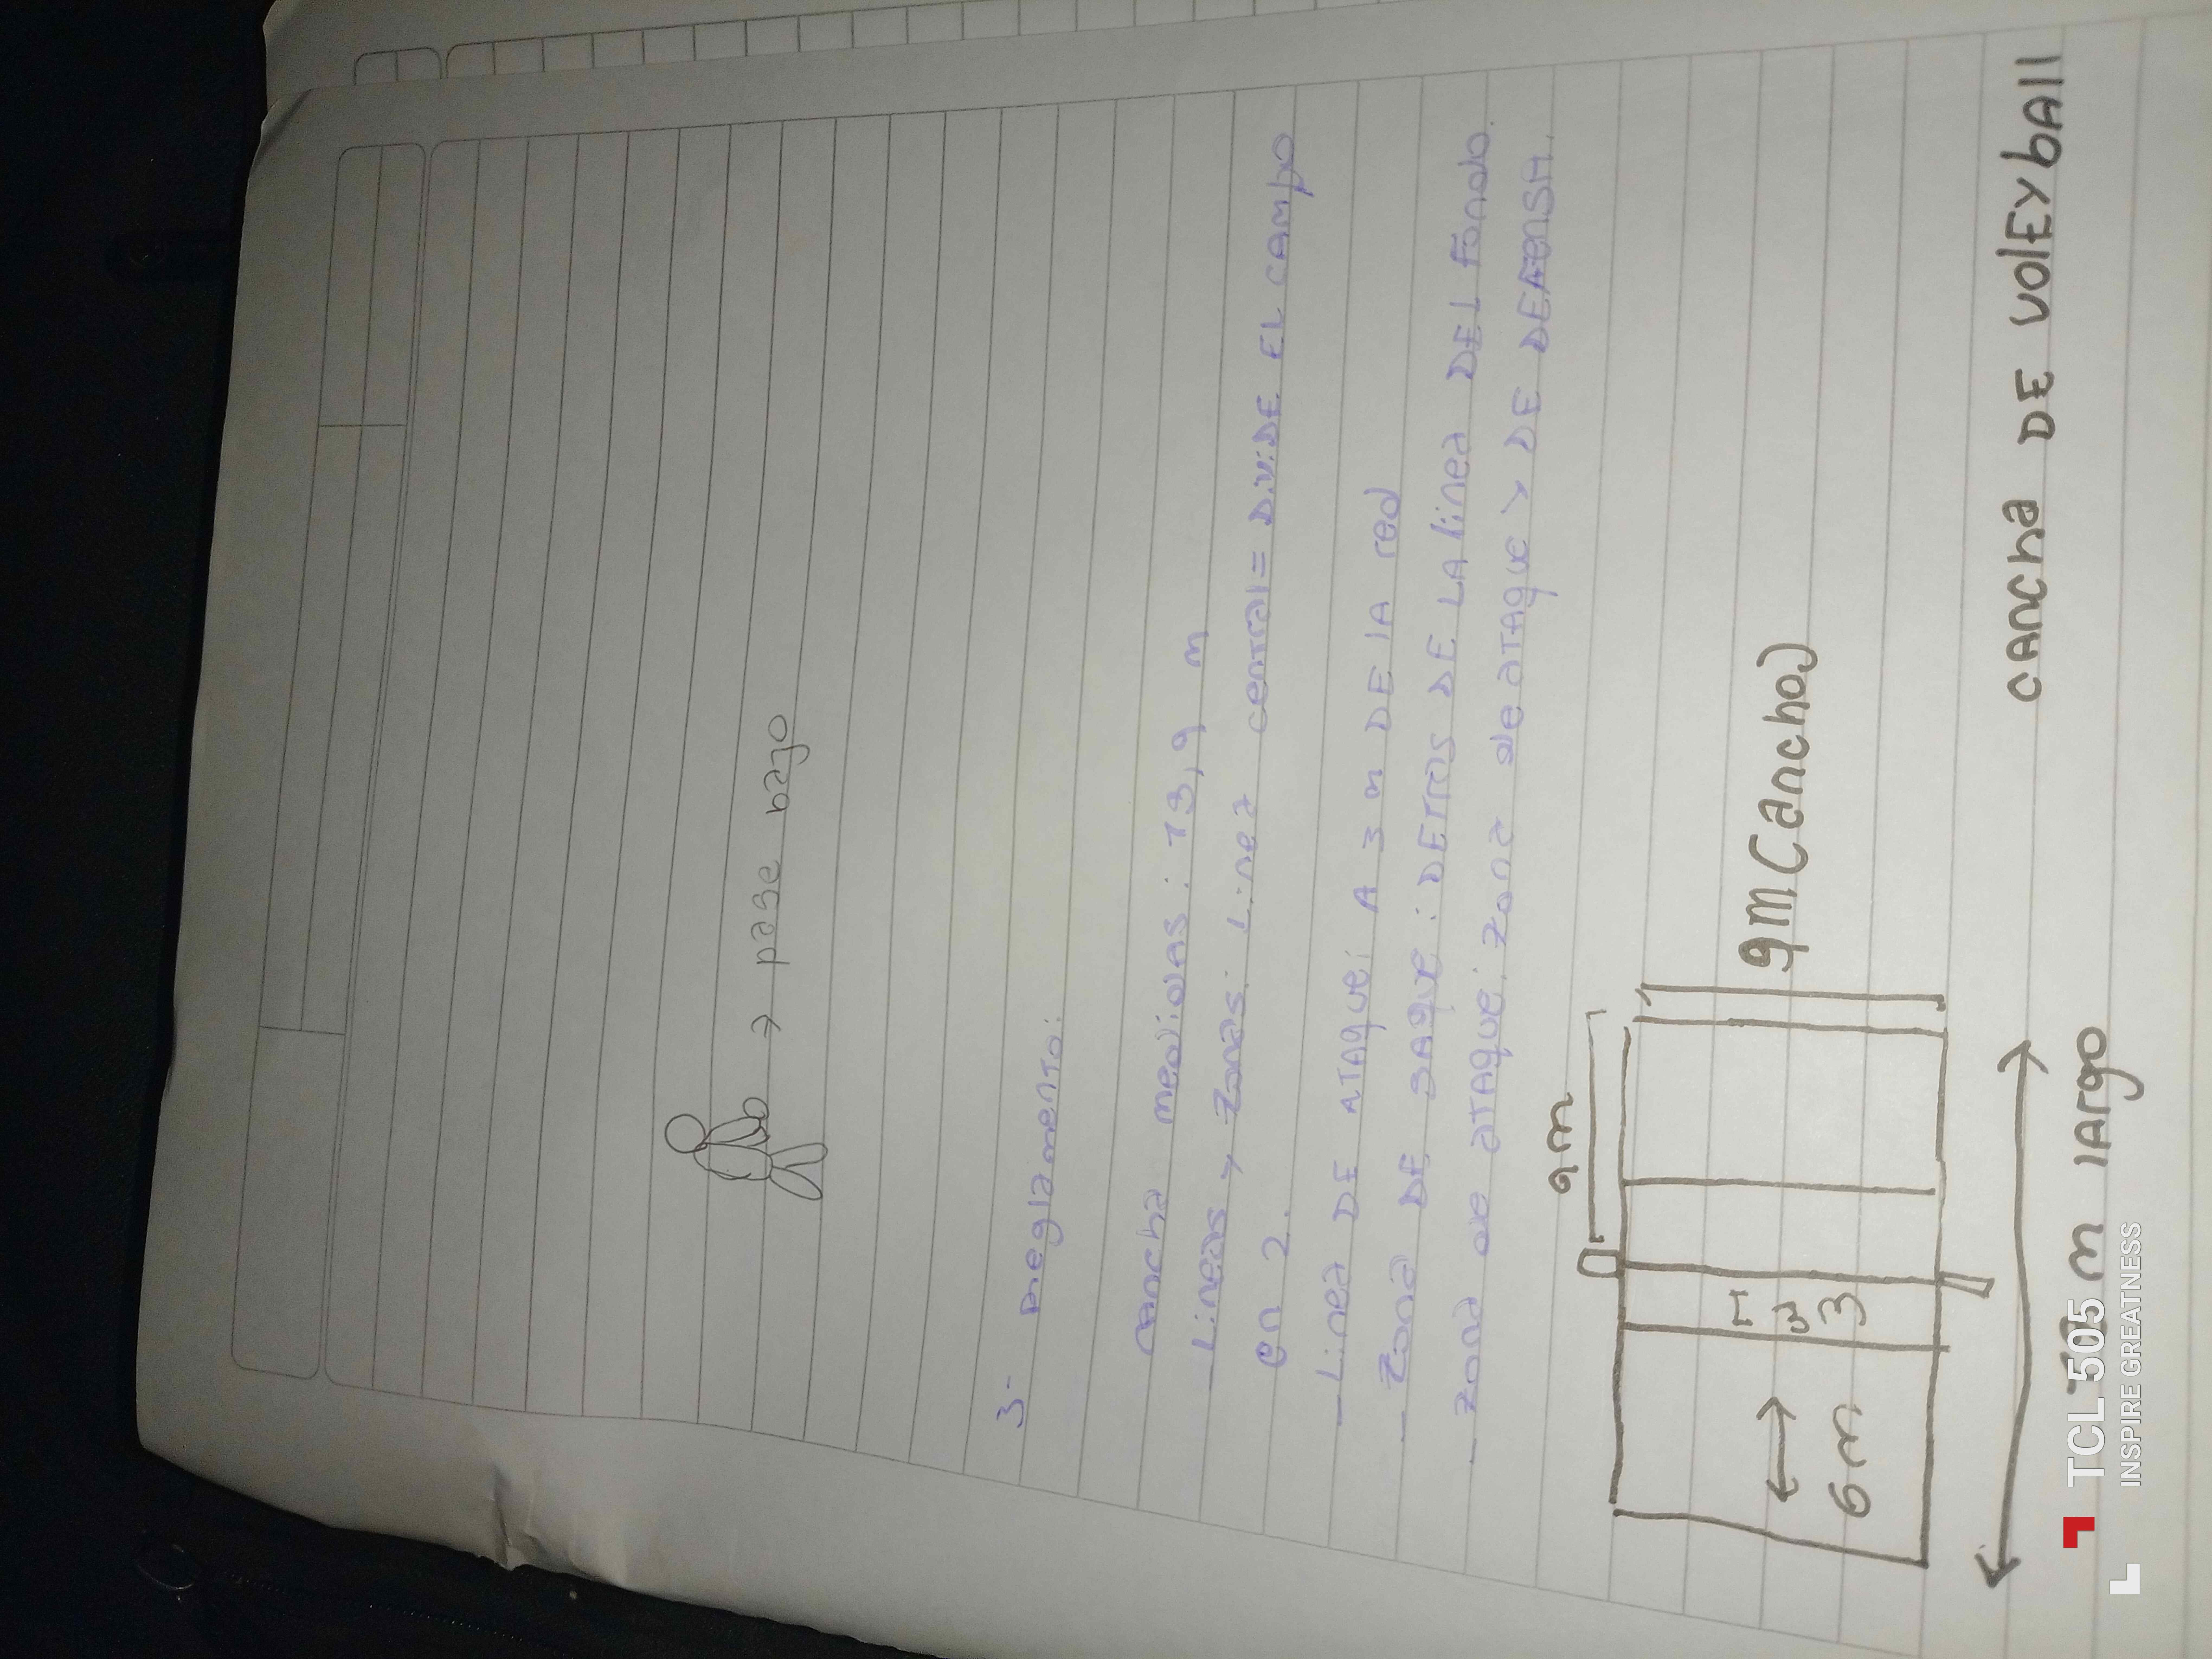 → pase bajo
3- Reglamento:
cancha medidas: 13,9 m
Lineas > Zonas: Linea central = DiviDE EL CAMPO
en 2.
- Linea DE ATAque: A 3 m DE lA red
- Zona DE SAque: DETras DE LA linea DEl Fondo.
- Zona de ATAque: Zona de ATAque > DE DEFENSA.
9m
3
6m
9m (ancho)
m lArgo
CANcha DE volEybAll
TCL 505
INSPIRE GREATNESS